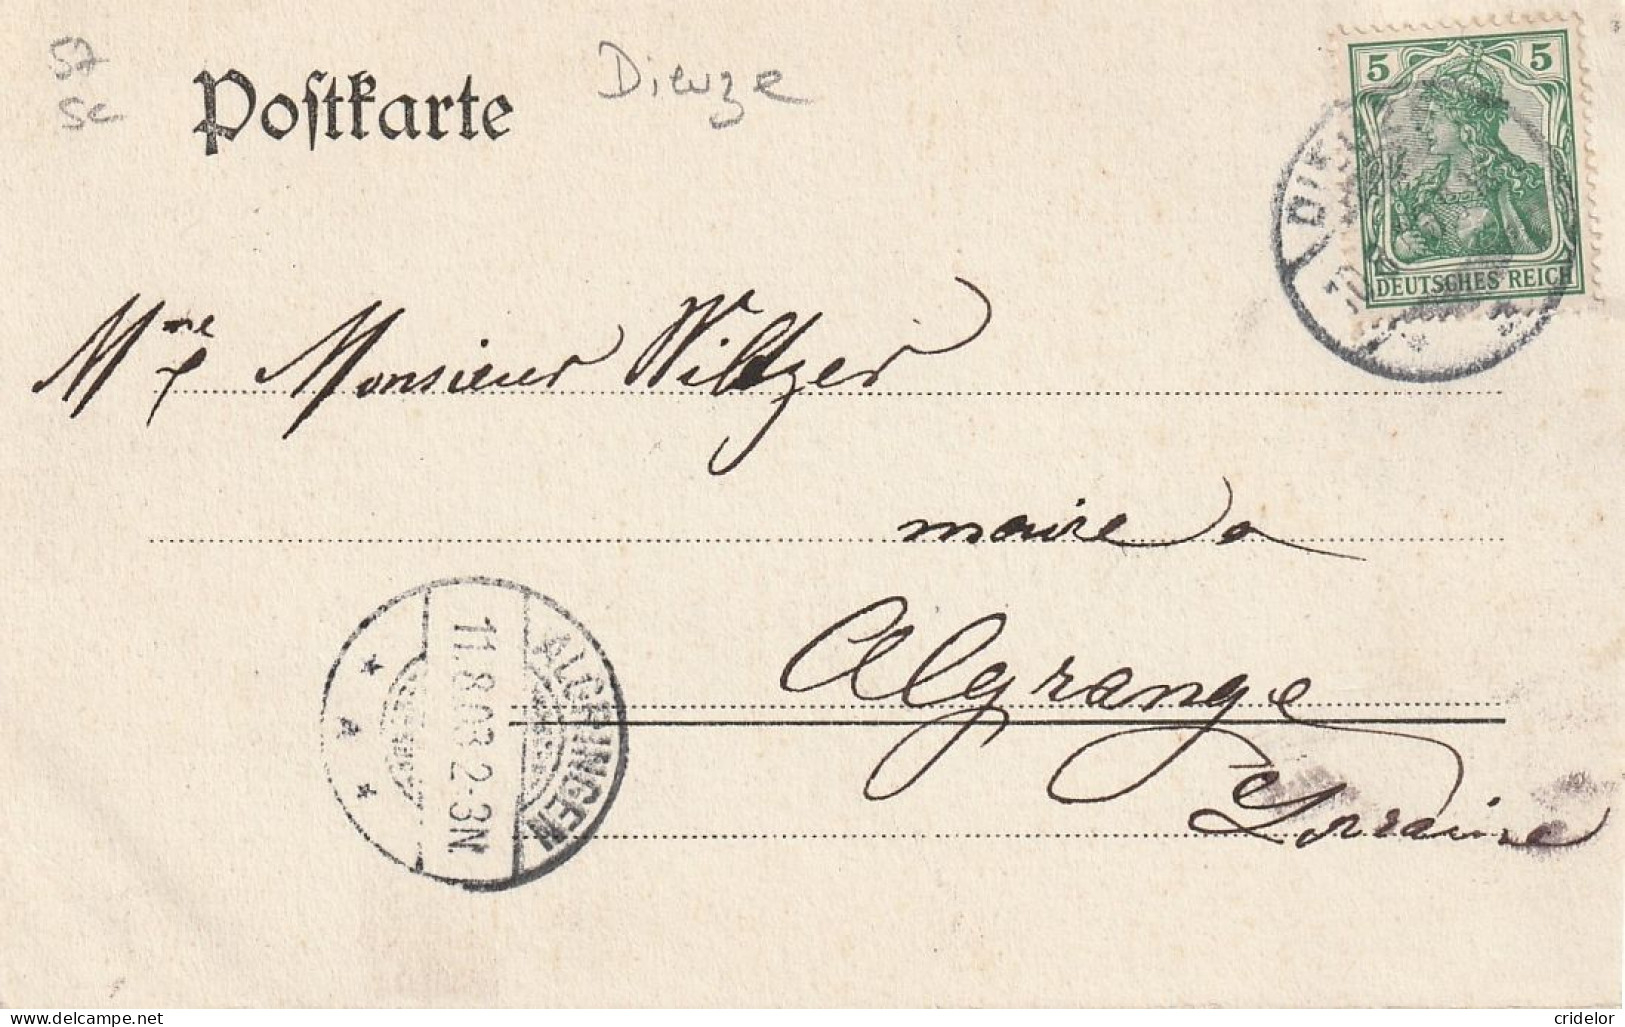 57
Postkarte
Dieuze
5 5
DEUTSCHES REICH
Mme & Monsieur Wiltzer
maire a
Algrange
Lorraine
ALGRINGEN
11.8.03.2-3N
* A *
www.delcampe.net
cridelor